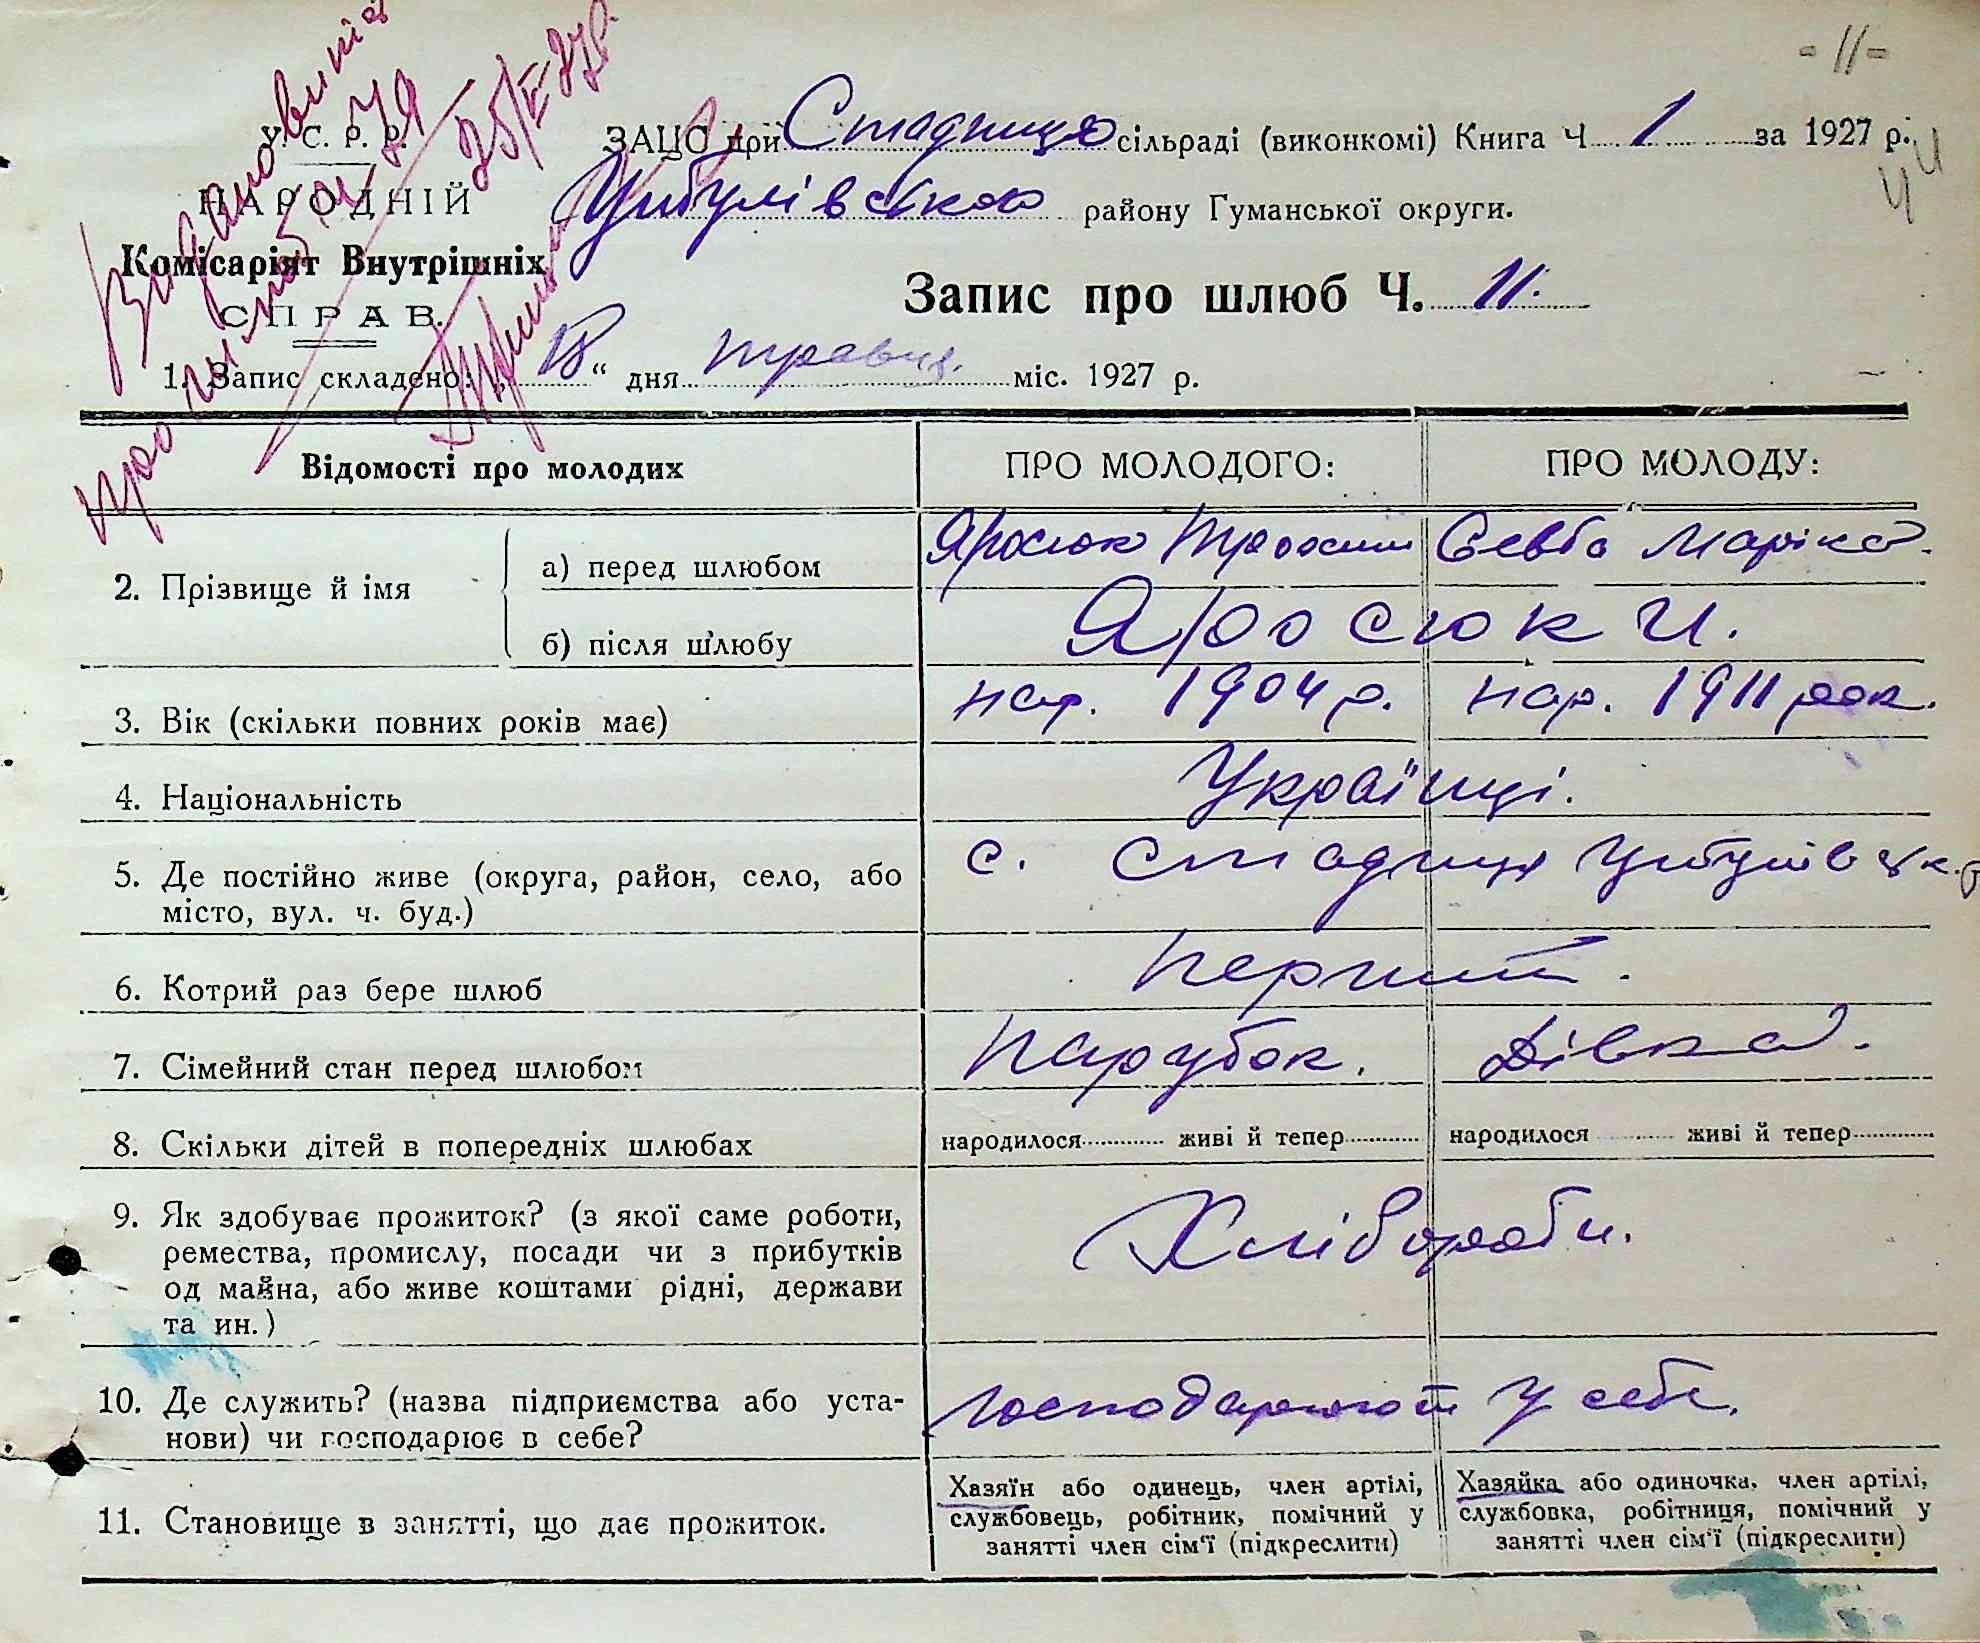 - 11 -
У. С. Р. Р.
НАРОДНІЙ
Комісаріят Внутрішніх
СПРАВ.
ЗАЦС при Стадниця сільраді (виконкомі) Книга Ч. 1 за 1927 р.
Цибулівською району Гуманської округи.
Запис про шлюб Ч. 11.
1. Запис складено: „18“ дня травня. міс. 1927 р.
Відомості про молодих
ПРО МОЛОДОГО:
ПРО МОЛОДУ:
2. Прізвище й імя
а) перед шлюбом
Яросюк
Маріка.
б) після шлюбу
Яросюки.
3. Вік (скільки повних років має)
нар. 1904 р.
нар. 1911 рок.
4. Національність
Українці.
5. Де постійно живе (округа, район, село, або
місто, вул. ч. буд.)
с. Стадниця
6. Котрий раз бере шлюб
Перший.
7. Сімейний стан перед шлюбом
Парубок.
Дівка.
8. Скільки дітей в попередніх шлюбах
народилося живі й тепер
народилося живі й тепер
9. Як здобуває прожиток? (з якої саме роботи,
ремества, промислу, посади чи з прибутків
од майна, або живе коштами рідні, держави
та ин.)
Хлібороби.
10. Де служить? (назва підприємства або уста-
нови) чи господарює в себе?
господарюють у себе.
11. Становище в занятті, що дає прожиток.
Хазяїн або одинець, член артілі,
службовець, робітник, помічний у
занятті член сім'ї (підкреслити)
Хазяйка або одиночка, член артілі,
службовка, робітниця, помічний у
занятті член сім'ї (підкреслити)